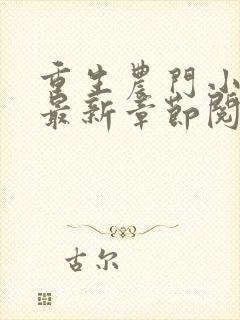 重生農門小
最新章節閱
古尔